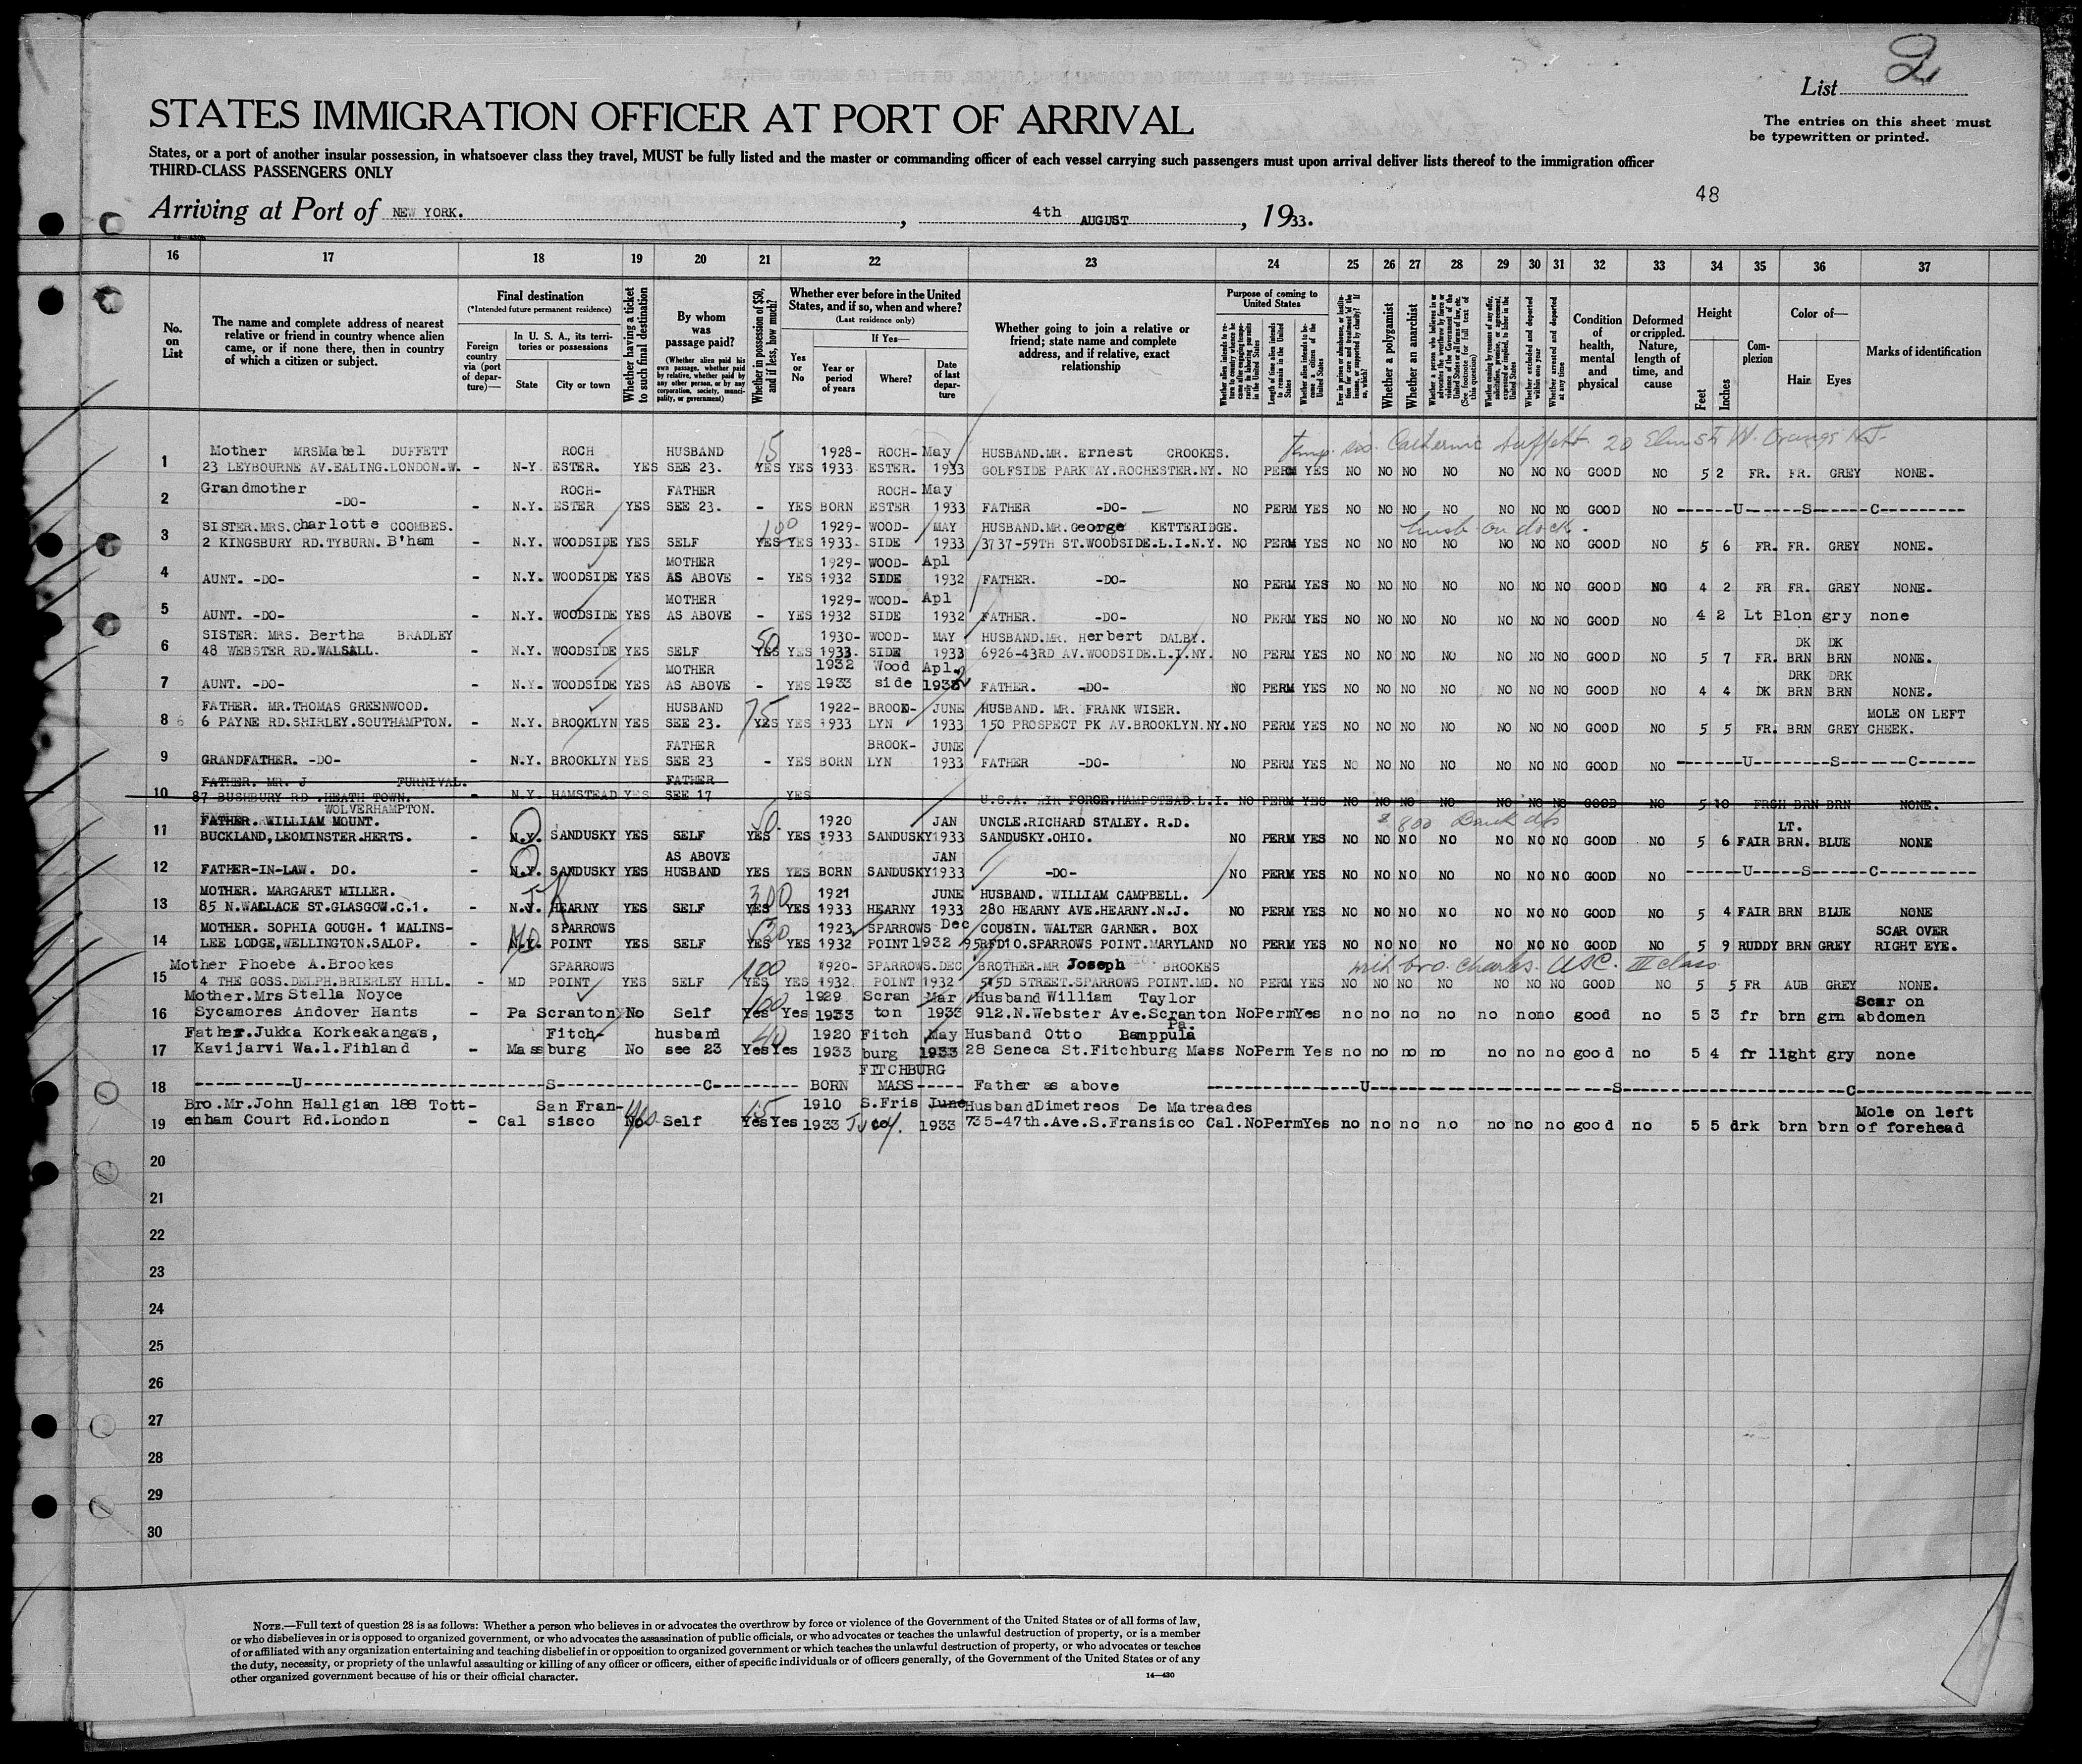 List 2
STATES IMMIGRATION OFFICER AT PORT OF ARRIVAL
The entries on this sheet must
be typewritten or printed.
States, or a port of another insular possession, in whatsoever class they travel, MUST be fully listed and the master or commanding officer of each vessel carrying such passengers must upon arrival deliver lists thereof to the immigration officer
THIRD-CLASS PASSENGERS ONLY
48
Arriving at Port of NEW YORK. , 4th AUGUST , 1933.
16 17 18 19 20 21 22 23 24 25 26 27 28 29 30 31 32 33 34 35 36 37
No. on List
The name and complete address of nearest relative or friend in country whence alien came, or if none there, then in country of which a citizen or subject.
Final destination
(*Intended future permanent residence)
Foreign country via (port of departure)—
In U. S. A., its territories or possessions
State
City or town
Whether having a ticket to such final destination
By whom was passage paid?
(Whether alien paid his own passage, whether paid by relative, whether paid by any other person, or by any corporation, society, municipality, or government)
Whether in possession of $50, and if less, how much?
Whether ever before in the United States, and if so, when and where?
(Last residence only)
Yes or No
If Yes—
Year or period of years
Where?
Date of last departure
Whether going to join a relative or friend; state name and complete address, and if relative, exact relationship
Purpose of coming to United States
Length of time alien intends to remain in the United States
Whether alien intends to become a citizen of the United States
Whether a polygamist
Whether an anarchist
Whether excluded and deported within one year
Whether arrested and deported at any time
Condition of health, mental and physical
Deformed or crippled. Nature, length of time, and cause
Height
Feet
Inches
Complexion
Color of—
Hair
Eyes
Marks of identification
Catherine Duffett. 20 Elm St W. Orange NJ
Mother MRS Mabel DUFFETT ROCH HUSBAND 15 1928- ROCH- May HUSBAND.MR. Ernest CROOKES.
1 23 LEYBOURNE AV.EALING.LONDON.W. - N-Y. ESTER. YES SEE 23. YES YES 1933 ESTER. 1933 GOLFSIDE PARKWAY.ROCHESTER.NY. NO PERM YES NO NO NO NO NO NO NO GOOD NO 5 2 FR. FR. GREY NONE.
Grandmother ROCH- FATHER ROCH- May
2 -DO- - N.Y. ESTER YES SEE 23. - YES BORN ESTER 1933 FATHER -DO- NO PERM YES NO NO NO NO NO NO NO GOOD NO ------U------S------C---------
SISTER.MRS.Charlotte COOMBES. 100 1929- WOOD- MAY HUSBAND.MR.George KETTERIDGE. husb on dock.
3 2 KINGSBURY RD.TYBURN. B'ham - N.Y. WOODSIDE YES SELF YES YES 1933. SIDE 1933 3737-59TH ST.WOODSIDE.L.I.N.Y. NO PERM YES NO NO NO NO NO NO NO GOOD NO 5 6 FR. FR. GREY NONE.
MOTHER 1929- WOOD- Apl
4 AUNT. -DO- - N.Y. WOODSIDE YES AS ABOVE - YES 1932 SIDE 1932 FATHER. -DO- NO PERM YES NO NO NO NO NO NO NO GOOD NO 4 2 FR FR. GREY NONE.
MOTHER 1929- WOOD- Apl
5 AUNT. -DO- - N.Y. WOODSIDE YES AS ABOVE - YES 1932 SIDE 1932 FATHER. -DO- NO PERM YES NO NO NO NO NO NO NO GOOD NO 4 2 Lt Blon gry none
SISTER: MRS. Bertha BRADLEY 50 1930- WOOD- MAY HUSBAND.MR. Herbert DALBY. DK DK
6 48 WEBSTER RD.WALSALL. - N.Y. WOODSIDE YES SELF YES YES 1933. SIDE 1933 6926-43RD AV.WOODSIDE.L.I.NY. NO PERM YES NO NO NO NO NO NO NO GOOD NO 5 7 FR. BRN BRN NONE.
MOTHER 1932 Wood Apl DRK DRK
7 AUNT. -DO- - N.Y. WOODSIDE YES AS ABOVE - YES 1933 side 1932 FATHER. -DO- NO PERM YES NO NO NO NO NO NO NO GOOD NO 4 4 DK BRN BRN NONE.
FATHER. MR.THOMAS GREENWOOD. HUSBAND 75 1922- BROOK- JUNE HUSBAND. MR. FRANK WISER. MOLE ON LEFT
8 6 6 PAYNE RD.SHIRLEY.SOUTHAMPTON. - N.Y. BROOKLYN YES SEE 23. YES YES 1933 LYN 1933 150 PROSPECT PK AV.BROOKLYN.NY. NO PERM YES NO NO NO NO NO NO NO GOOD NO 5 5 FR. BRN GREY CHEEK.
FATHER BROOK- JUNE
9 GRANDFATHER. -DO- - N.Y. BROOKLYN YES SEE 23 - YES BORN LYN 1933 FATHER -DO- NO PERM YES NO NO NO NO NO NO NO GOOD NO -------U-------S------C-------
FATHER. MR. J FURNIVAL. FATHER
10 87 BUSHBURY RD .HEATH TOWN. - N.Y. HAMSTEAD YES SEE 17 YES U.S.A. AIR FORCE.HAMPSTEAD.L.I. NO PERM YES NO NO NO NO NO NO NO GOOD NO 5 10 FRSH BRN BRN NONE.
WOLVERHAMPTON.
FATHER. WILLIAM MOUNT. 50. 1920 JAN UNCLE.RICHARD STALEY. R.D. $ 800 Bank dfs LT.
11 BUCKLAND,LEOMINSTER.HERTS. - N.Y. SANDUSKY YES SELF YES YES 1933 SANDUSKY 1933 SANDUSKY.OHIO. NO PERM YES NO NO NO NO NO NO NO GOOD NO 5 6 FAIR BRN. BLUE NONE
AS ABOVE JAN
12 FATHER-IN-LAW. DO. - N.Y. SANDUSKY YES HUSBAND YES YES BORN SANDUSKY 1933 -DO- NO PERM YES NO NO NO NO NO NO NO GOOD NO ------U------S------C-----------
MOTHER. MARGARET MILLER. 300 1921 JUNE HUSBAND. WILLIAM CAMPBELL.
13 85 N.WALLACE ST.GLASGOW.C.1. - N.J. HEARNY YES SELF YES YES 1933 HEARNY 1933 280 HEARNY AVE.HEARNY.N.J. NO PERM YES NO NO NO NO NO NO NO GOOD NO 5 4 FAIR BRN BLUE NONE
MOTHER. SOPHIA GOUGH. 1 MALINS- MD SPARROWS 1923 SPARROWS Dec COUSIN. WALTER GARNER. BOX SCAR OVER
14 LEE LODGE,WELLINGTON.SALOP. - N.Y. POINT YES SELF YES YES 1932 POINT 1932 95RFD10.SPARROWS POINT.MARYLAND NO PERM YES NO NO NO NO NO NO NO GOOD NO 5 9 RUDDY BRN GREY RIGHT EYE.
Mother Phoebe A.Brookes SPARROWS 100 1920- SPARROWS.DEC BROTHER.MR Joseph BROOKES with bro. Charles. USC. III class
15 4 THE GOSS.DELPH.BRIERLEY HILL. - MD POINT YES SELF YES YES 1932. POINT 1932 515D STREET.SPARROWS POINT.MD. NO PERM YES NO NO NO NO NO NO NO GOOD NO 5 5 FR AUB GREY NONE.
Mother.Mrs Stella Noyce 100 1929 Scran Mar Husband William Taylor Scar on
16 Sycamores Andover Hants - Pa Scranton No Self Yes Yes 1933 ton 1933 912.N.Webster Ave.Scranton Pa. No Perm Yes no no no no no no no good no 5 3 fr brn grn abdomen
Father.Jukka Korkeakangas, Fitch- husband 40 1920 Fitch May Husband Otto Bamppula
17 Kavijarvi Wa.l.Finland - Mass burg No see 23 Yes Yes 1933 burg 1933 28 Seneca St.Fitchburg Mass No Perm Yes no no no no no no no good no 5 4 fr light gry none
FITCHBURG
18 ----------U------------------------S---------------C--------- BORN MASS ----- Father as above ---------------U------------------------S----------------------C--------
Bro.Mr.John Hallgian 188 Tott- San Fran- Yes 15 1910 S.Fris June Husband Dimetreos De Matreades Mole on left
19 enham Court Rd.London - Cal sisco No Self Yes Yes 1933 co 1933 735-47th.Ave.S.Fransisco Cal. No Perm Yes no no no no no no no good no 5 5 drk brn brn of forehead
20
21
22
23
24
25
26
27
28
29
30
NOTE.—Full text of question 28 is as follows: Whether a person who believes in or advocates the overthrow by force or violence of the Government of the United States or of all forms of law,
or who disbelieves in or is opposed to organized government, or who advocates the assassination of public officials, or who advocates or teaches the unlawful destruction of property, or is a member
of or affiliated with any organization entertaining and teaching disbelief in or opposition to organized government or which teaches the unlawful destruction of property, or who advocates or teaches
the duty, necessity, or propriety of the unlawful assaulting or killing of any officer or officers, either of specific individuals or of officers generally, of the Government of the United States or of any
other organized government because of his or their official character.
14—430